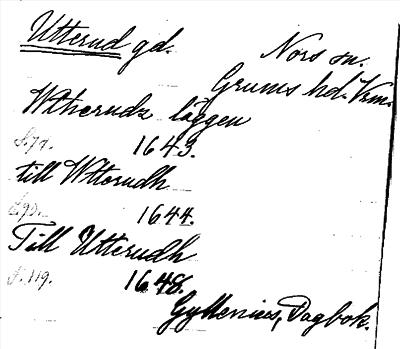 Utterud gd. Nors sn.
Grums hd. Vrm.
Wtherudz läggen
S. 77. 1643.
till Wtterudh
S. 90. 1644.
Till Utterudh
S. 119. 1648.
Gyllenii, Dagbok.